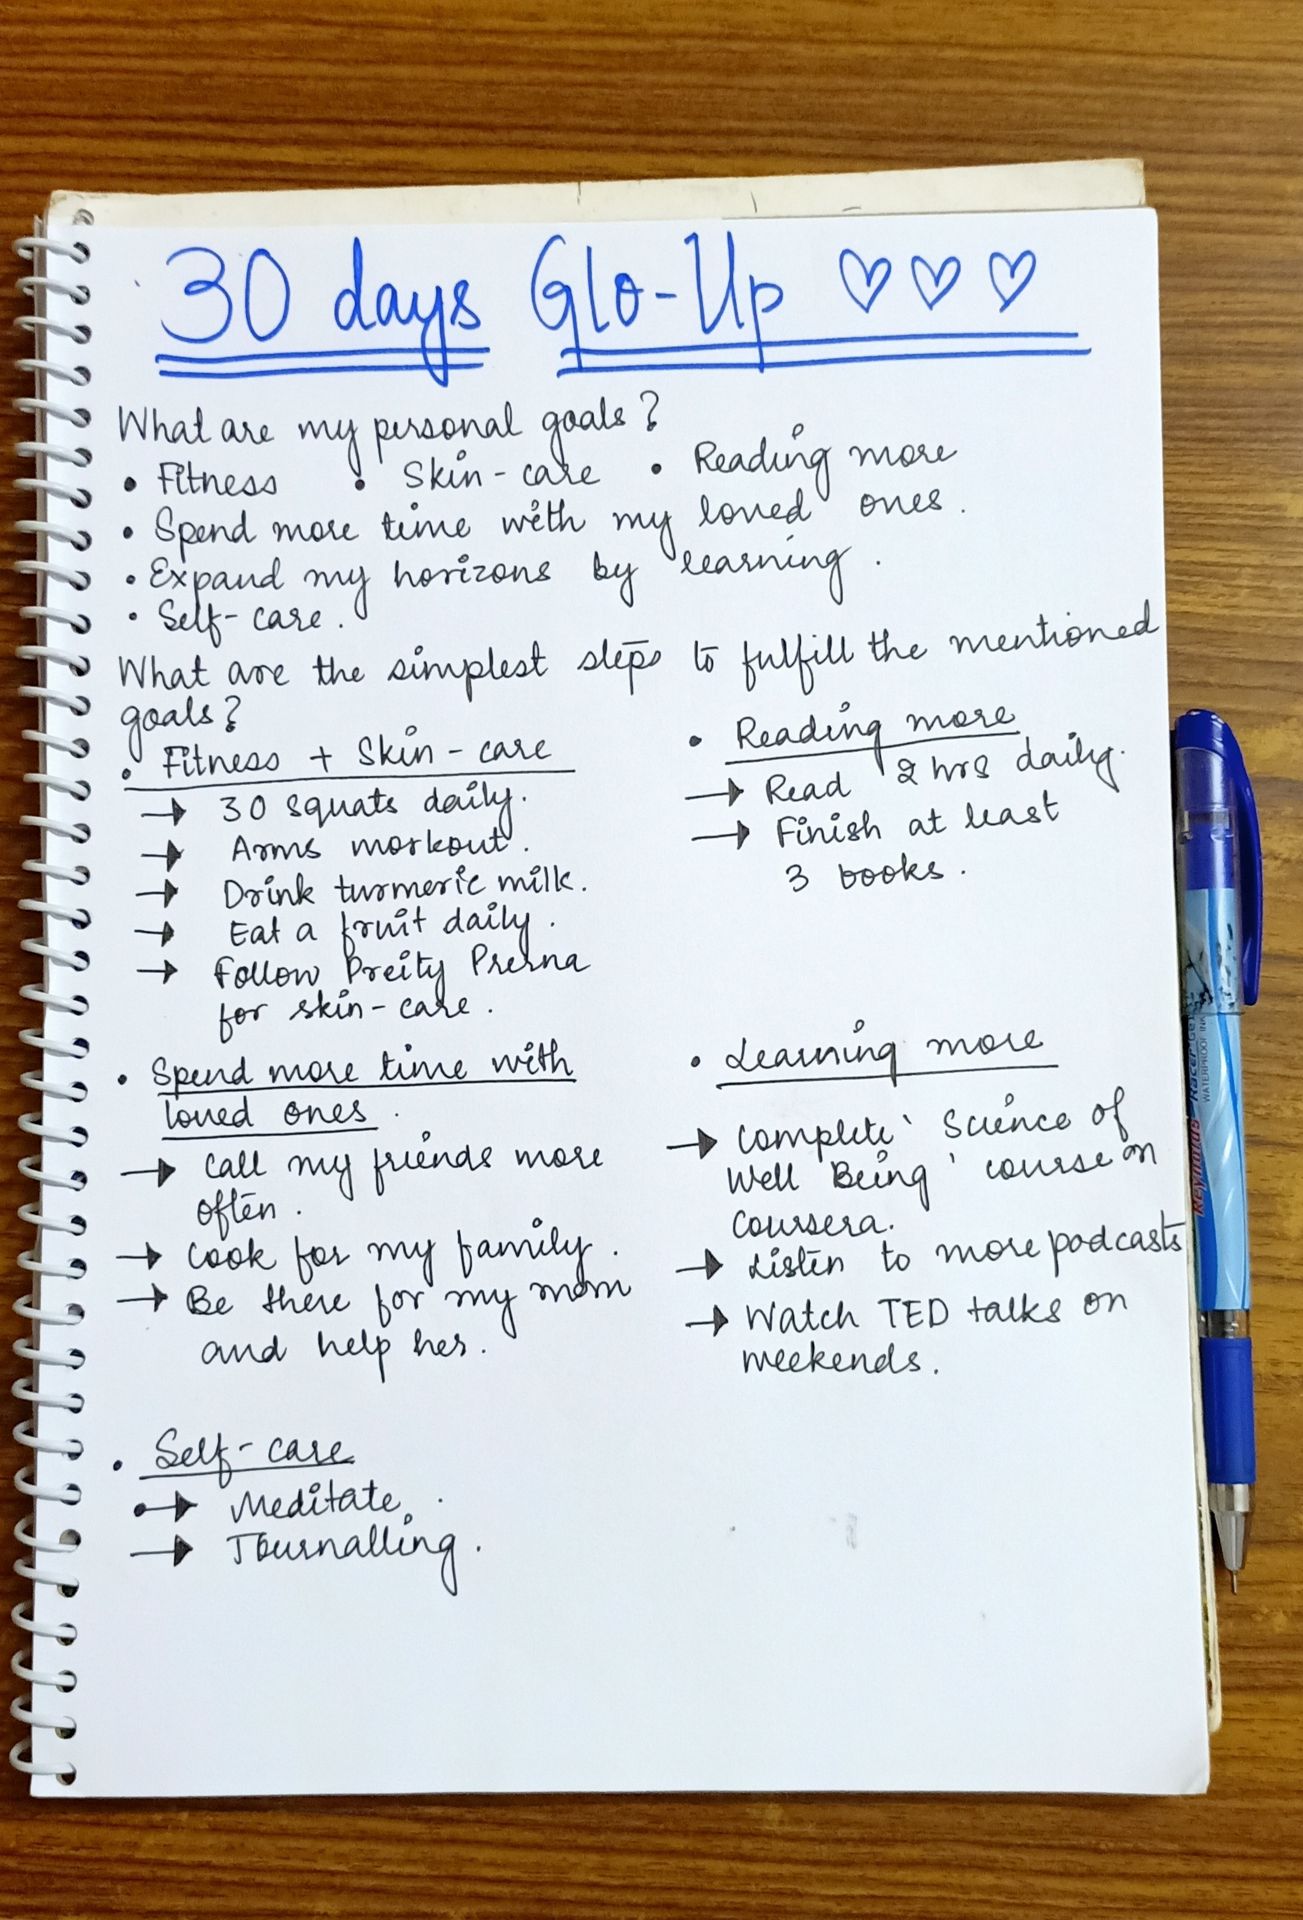 30 days Glo-Up ♡ ♡ ♡
What are my personal goals?
• Fitness • Skin-care • Reading more
• Spend more time with my loved ones.
• Expand my horizons by learning.
• Self-care.
What are the simplest steps to fulfill the mentioned
goals?
• Fitness + Skin-care
→ 30 squats daily.
→ Arms workout.
→ Drink turmeric milk.
→ Eat a fruit daily.
→ Follow Preity Prerna
for skin-care.
• Reading more
→ Read 2 hrs daily.
→ Finish at least
3 books.
• Spend more time with
loved ones.
→ Call my friends more
often.
→ Cook for my family.
→ Be there for my mom
and help her.
• Learning more
→ Complete 'Science of
Well Being' course on
coursera.
→ Listen to more podcasts
→ Watch TED talks on
weekends.
• Self-care
→ Meditate.
→ Journalling.
Reynolds Racer Gel
WATERPROOF INK